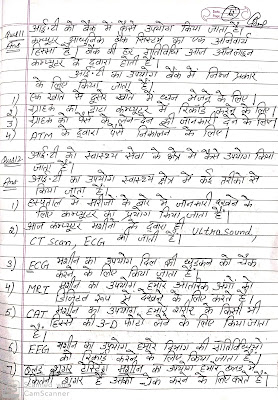 Ques11 आई.टी को बैंक में कैसे उपयोग किया जाता है।
Ans कम्प्यूटर आधुनिक बैंक सिस्टम का एक अभिन्न
हिस्सा है। बैंक की हर गतिविधि आज ऑनलाइन
कम्प्यूटर के द्वारा होती है।
आई.टी का उपयोग बैंक में निम्न प्रकार
से लिए किया जाता है।
1) एक खाते से दूसरे खाते में धन भेजने के लिए।
2) ग्राहक का डाटा कम्प्यूटर में रिकॉर्ड करने के लिए।
3) ग्राहक को पैसे के लेन देन की जानकारी देने के लिए।
4) ATM के द्वारा पैसे निकालने के लिए।
Ques12 आई.टी को स्वास्थ्य सेवा के क्षेत्र में कैसे उपयोग किया
जाता है।
Ans आई.टी का उपयोग स्वास्थ्य क्षेत्र में कई तरीकों से
किया जाता है।
1) हस्पताल में मरीजों के बारे में जानकारी रखने के
लिए कम्प्यूटर का प्रयोग किया जाता है।
2) आज कम्प्यूटर मशीनों के द्वारा ही Ultrasound,
CT Scan, ECG की जाती है।
3) ECG मशीन का उपयोग दिल की धड़कन को चैक
करने के लिए किया जाता है।
4) MRI मशीन का उपयोग हमारे आंतरिक अंगों को
डिजिटल रूप से देखने के लिए करते है।
5) CAT मशीन का उपयोग हमारे शरीर के किसी भी
हिस्से की 3-D फोटो लेने के लिए किया जाता
है।
6) EEG मशीन का उपयोग हमारे दिमाग की गतिविधियों
को रिकॉर्ड करने के लिए किया जाता है।
7) ब्लड शुगर टेस्टिंग मशीन का उपयोग हमारे ब्लड में
कितनी शुगर है उसको चैक करने के लिए करते है।
CS CamScanner